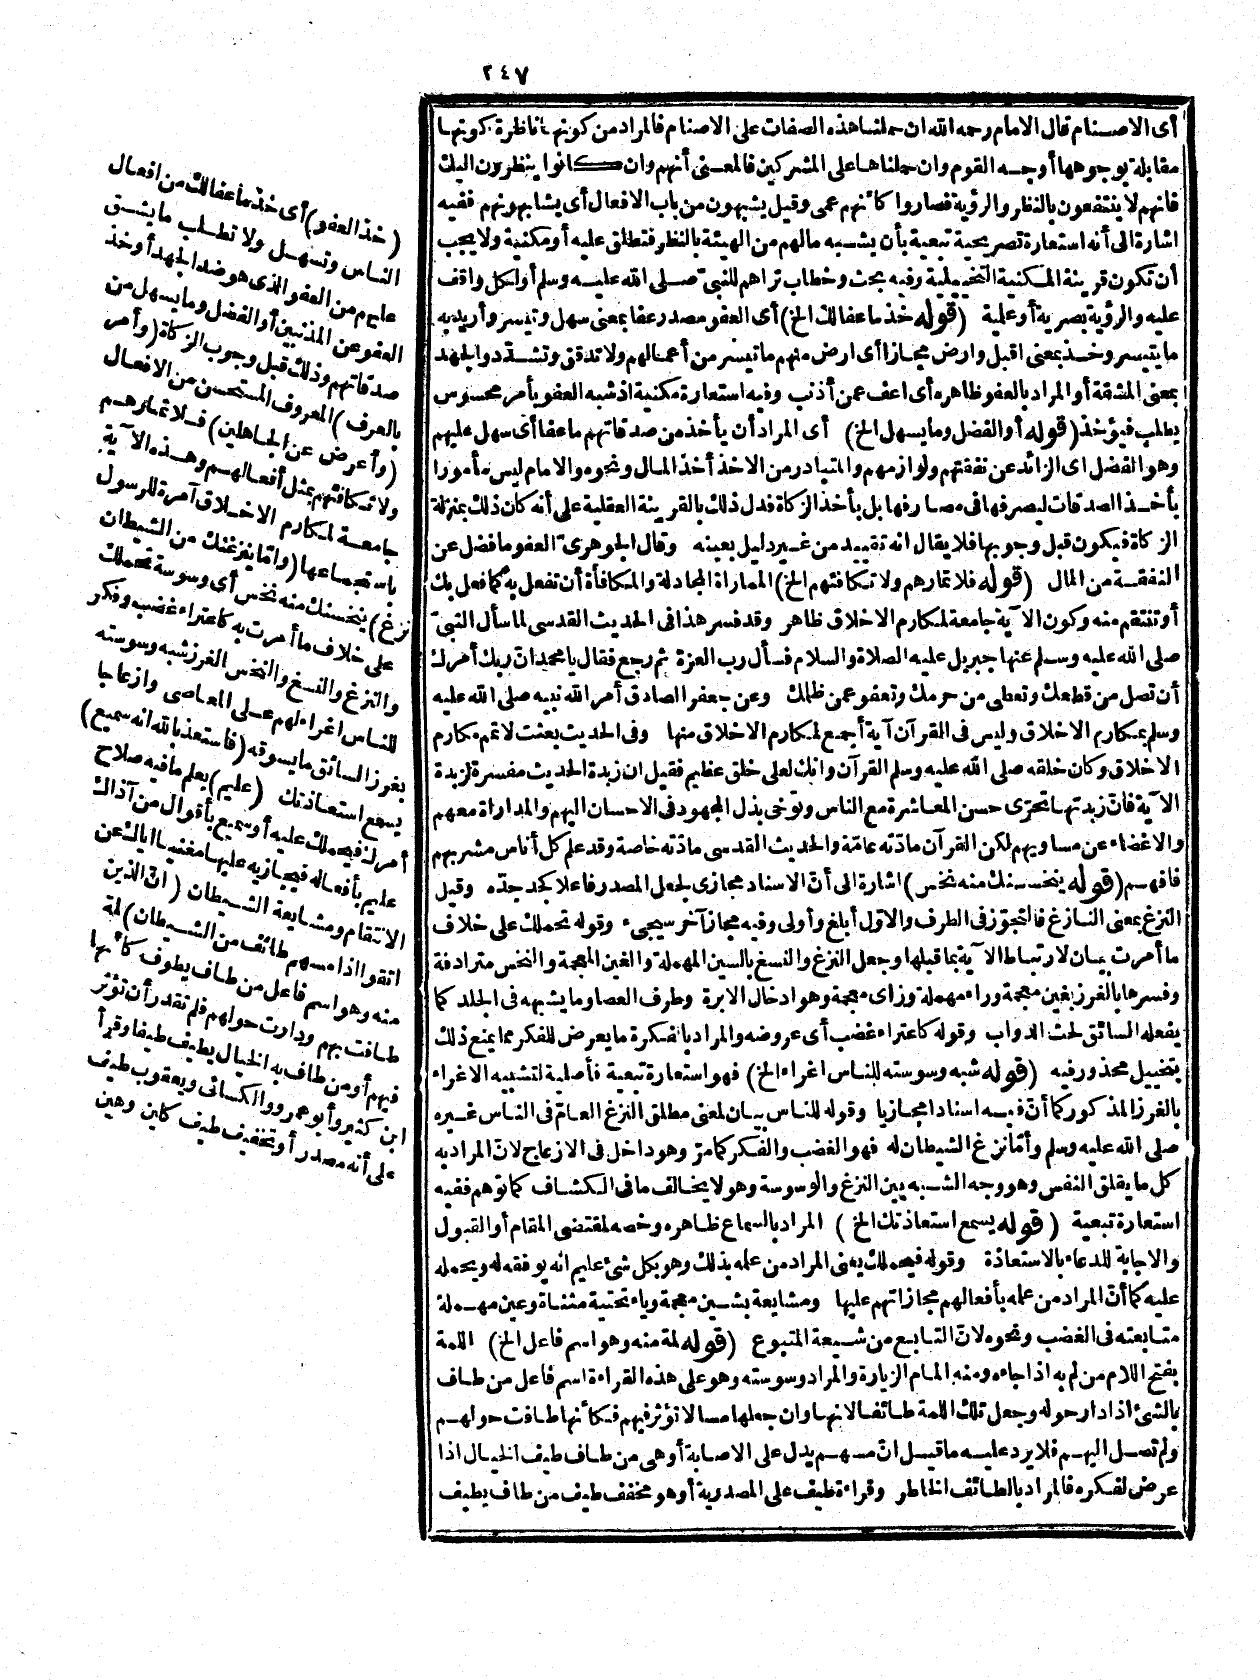 ٢٤٧
أى الاصنام قال الامام رحمه الله ان حملنا هذه الصفات على الاصنام فالمراد من كونها ناظرة كونها
مقابلة بوجوهها أوجه القوم وان حملناها على المشركين فالمعنى أنهم وان كانوا ينظرون اليك
فانهم لا ينتفعون بالنظر والرؤية فصاروا كأنهم عمى وقيل يشبهون من باب الافعال أى يشابهونهم ففيه
اشارة الى أنه استعارة تصريحية تبعية بأن يشبه مالهم من الهيئة بالنظر فتطلق عليه أو مكنية ولا يجب
أن تكون قرينة المكنية التخييلية وفيه بحث وخطاب تراهم للنبى صلى الله عليه وسلم أو لكل واقف
عليه والرؤية بصرية أو علمية (قوله خذ ما عفا لك الخ) أى العفو مصدر عفا بمعنى سهل وتيسر وأريد به
ما يتيسر وخذ بمعنى اقبل وارض مجازا أى ارض منهم ما تيسر من أعمالهم ولا تدقق وتشدد والجهد
بمعنى المشقة أو المراد بالعفو ظاهره أى اعف عمن أذنب وفيه استعارة مكنية اذ شبه العفو بأمر محسوس
يطلب فيؤخذ (قوله أو الفضل وما يسهل الخ) أى المراد أن يأخذ من صدقاتهم ما عفا أى سهل عليهم
وهو الفضل اى الزائد عن نفقتهم ولوازمهم والمتبادر من الاخذ أخذ المال ونحوه والامام ليس مأمورا
بأخذ الصدقات ليصرفها فى مصارفها بل بأخذ الزكاة فدل ذلك بالقرينة العقلية على أنه كان ذلك بمنزلة
الزكاة فيكون قبل وجوبها فلا يقال انه تقييد من غير دليل بعينه وقال الجوهرى العفو ما فضل عن
النفقة من المال (قوله فلا تمارهم ولا تكافئهم الخ) المماراة المجادلة والمكافأة أن تفعل به كما فعل بك
أو تنتقم منه وكون الآية جامعة لمكارم الاخلاق ظاهر وقد فسر هذا فى الحديث القدسى لما سأل النبى
صلى الله عليه وسلم عنها جبريل عليه الصلاة والسلام فسأل رب العزة ثم رجع فقال يا محمد ان ربك أمرك
أن تصل من قطعك وتعطى من حرمك وتعفو عمن ظلمك وعن جعفر الصادق أمر الله نبيه صلى الله عليه
وسلم بمكارم الاخلاق وليس فى القرآن آية أجمع لمكارم الاخلاق منها وفى الحديث بعثت لاتمم مكارم
الاخلاق وكان خلقه صلى الله عليه وسلم القرآن وانك لعلى خلق عظيم فقيل ان زبدة الحديث مفسرة لزبدة
الآية فان زبدتها تحرى حسن المعاشرة مع الناس وتوخى بذل المجهود فى الاحسان اليهم والمداراة معهم
والاغضاء عن مساويهم لكن القرآن مادته عامة والحديث القدسى مادته خاصة وقد علم كل أناس مشربهم
فافهم (قوله ينخسنك منه نخس) اشارة الى أن الاسناد مجازى لجعل المصدر فاعلا كجد جده وقيل
النزغ بمعنى النازغ فالتجوز فى الطرف والاول أبلغ وأولى وفيه مجاز آخر سيجىء وقوله تحملك على خلاف
ما أمرت بيان لارتباط الآية بما قبلها وجعل النزغ والنسغ بالسين المهملة والغين المعجمة والنخس مترادفة
وفسرها بالغرز بغين معجمة وراء مهملة وزاى معجمة وهو ادخال الابرة وطرف العصا وما يشبهه فى الجلد كما
يفعله السائق لحث الدواب وقوله كاعتراء غضب أى عروضه والمراد بالفكرة ما يعرض للفكر مما يمنع ذلك
بتخييل محذور فيه (قوله شبه وسوسته للناس اغراء الخ) فهو استعارة تبعية فأصلية لتشبيه الاغراء
بالغرز المذكور كما أن فيه اسنادا مجازيا وقوله للناس بيان لمعنى مطلق النزغ العام فى الناس غيره
صلى الله عليه وسلم وأما نزغ الشيطان له فهو الغضب والفكر كما مر وهو داخل فى الازعاج لان المراد به
كل ما يقلق النفس وهو وجه الشبه بين النزغ والوسوسة وهو لا يخالف ما فى الكشاف كما توهم ففيه
استعارة تبعية (قوله يسمع استعاذتك الخ) المراد بالسماع ظاهره وخصه لمقتضى المقام أو القبول
والاجابة للدعاء بالاستعاذة وقوله فيحملك يعنى المراد من علمه بذلك وهو بكل شئ عليم انه يوفقه له ويحمله
عليه كما أن المراد من علمه بأفعالهم مجازاتهم عليها ومشايعة بشين معجمة وياء تحتية مثناة وعين مهملة
متابعته فى الغضب ونحوه لان التابع من شيعة المتبوع (قوله لمة منه وهو اسم فاعل الخ) اللمة
بفتح اللام من لم به اذا جاءه ومنه المام الزيارة والمراد وسوسته وهو على هذه القراءة اسم فاعل من طاف
بالشئ اذا دار حوله وجعل تلك اللمة طائفا لانها وان جعلها مسا لا تؤثر فيهم فكأنها طافت حولهم
ولم تصل اليهم فلا يرد عليه ما قيل ان مسهم يدل على الاصابة أو هى من طاف طيف الخيال اذا
عرض لفكره فالمراد بالطائف الخاطر وقراءة طيف على المصدرية أو هو مخفف طيف من طاف يطيف
(خذ العفو) أى خذ ما عفا لك من افعال
الناس وتسهل ولا تطلب ما يشق
عليهم من العفو الذى هو ضد الجهد أو خذ
العفو عن المذنبين أو الفضل وما يسهل من
صدقاتهم وذلك قبل وجوب الزكاة (وأمر
بالعرف) المعروف المستحسن من الافعال
(وأعرض عن الجاهلين) فلا تمارهم
ولا تكافئهم بمثل أفعالهم وهذه الآية
جامعة لمكارم الاخلاق آمرة للرسول
باستجماعها (واما ينزغنك من الشيطان
نزغ) ينخسنك منه نخس أى وسوسة تحملك
على خلاف ما أمرت به كاعتراء غضب وفكر
والنزغ والنسغ والنخس الغرز شبه وسوسته
للناس اغراء لهم على المعاصى وازعاجا
بغرز السائق ما يسوقه (فاستعذ بالله انه سميع)
يسمع استعاذتك (عليم) يعلم ما فيه صلاح
أمرك فيحملك عليه أو سميع بأقوال من آذاك
عليم بأفعاله فيجازيه عليها مغنيا اياك عن
الانتقام ومشايعة الشيطان (ان الذين
اتقوا اذا مسهم طائف من الشيطان) لمة
منه وهو اسم فاعل من طاف يطوف كأنها
طافت بهم ودارت حولهم فلم تقدر أن تؤثر
فيهم أو من طاف به الخيال يطيف طيفا وقرأ
ابن كثير وأبو عمرو والكسائى ويعقوب طيف
على أنه مصدر أو تخفيف طيف كلين وهين